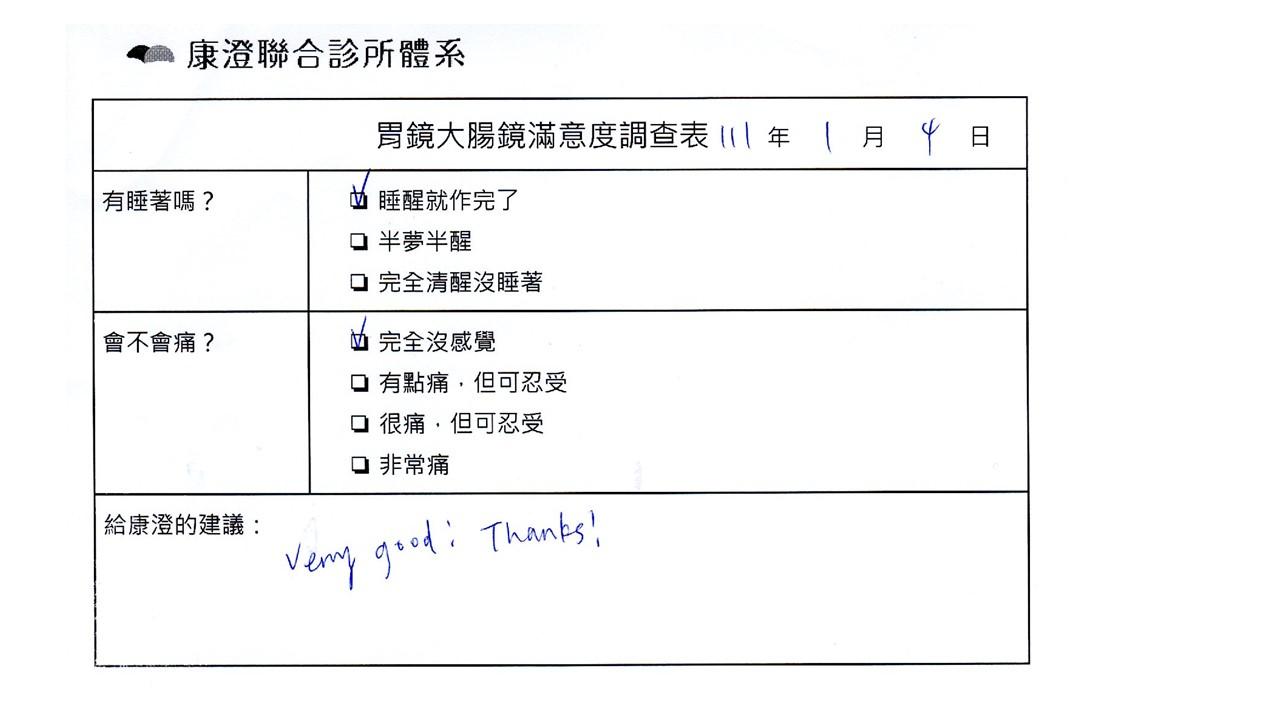 康澄聯合診所體系
胃鏡大腸鏡滿意度調查表 111 年 1 月 4 日
有睡著嗎？
睡醒就作完了
半夢半醒
完全清醒沒睡著
會不會痛？
完全沒感覺
有點痛，但可忍受
很痛，但可忍受
非常痛
給康澄的建議：
Very good! Thanks!